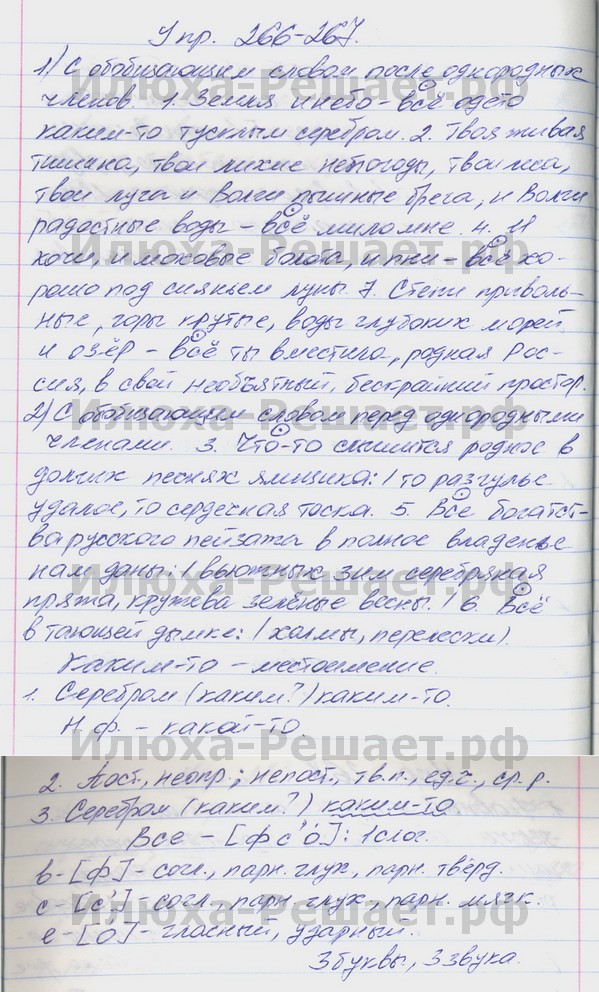 Упр. 266-267.
1) С обобщающим словом после однородных
членов. 1. Земля и небо - всё одето
каким-то тусклым серебром. 2. Твоя живая
тишина, твои лихие непогоды, твои леса,
твои луга и Волги пышные брега, и Волги
радостные воды - всё мило мне. 4. И
кочи, и моховые болота, и пни - всё хо-
рошо под сияньем луны. 7. Степи приволь-
ные, горы крутые, воды глубоких морей
и озёр - всё ты вместила, родная Рос-
сия, в свой необъятный, бескрайний простор.
2) С обобщающим словом перед однородными
членами. 3. Что-то слышится родное в
долгих песнях ямщика: то разгулье
удалое, то сердечная тоска. 5. Все богатст-
ва русского пейзажа в полное владенье
нам даны: вьюжных зим серебряная
пряжа, кружева зелёные весны. 6. Всё
в тающей дымке: (холмы, перелески).
Каким-то - местоимение.
1. Серебром (каким?) каким-то.
Н.ф. - какой-то.
2. Пост., неопр.; непост., тв.п., ед.ч., ср.р.
3. Серебром (каким?) каким-то
Все - [фс'о́]: 1 слог.
в - [ф] - согл., парн. глух., парн. твёрд.
с - [с'] - согл., парн. глух., парн. мягк.
е - [о́] - гласный, ударный.
3 буквы, 3 звука.
Илюха-Решает.рф
Илюха-Решает.рф
Илюха-Решает.рф
Илюха-Решает.рф
Илюха-Решает.рф
Илюха-Решает.рф
Илюха-Решает.рф